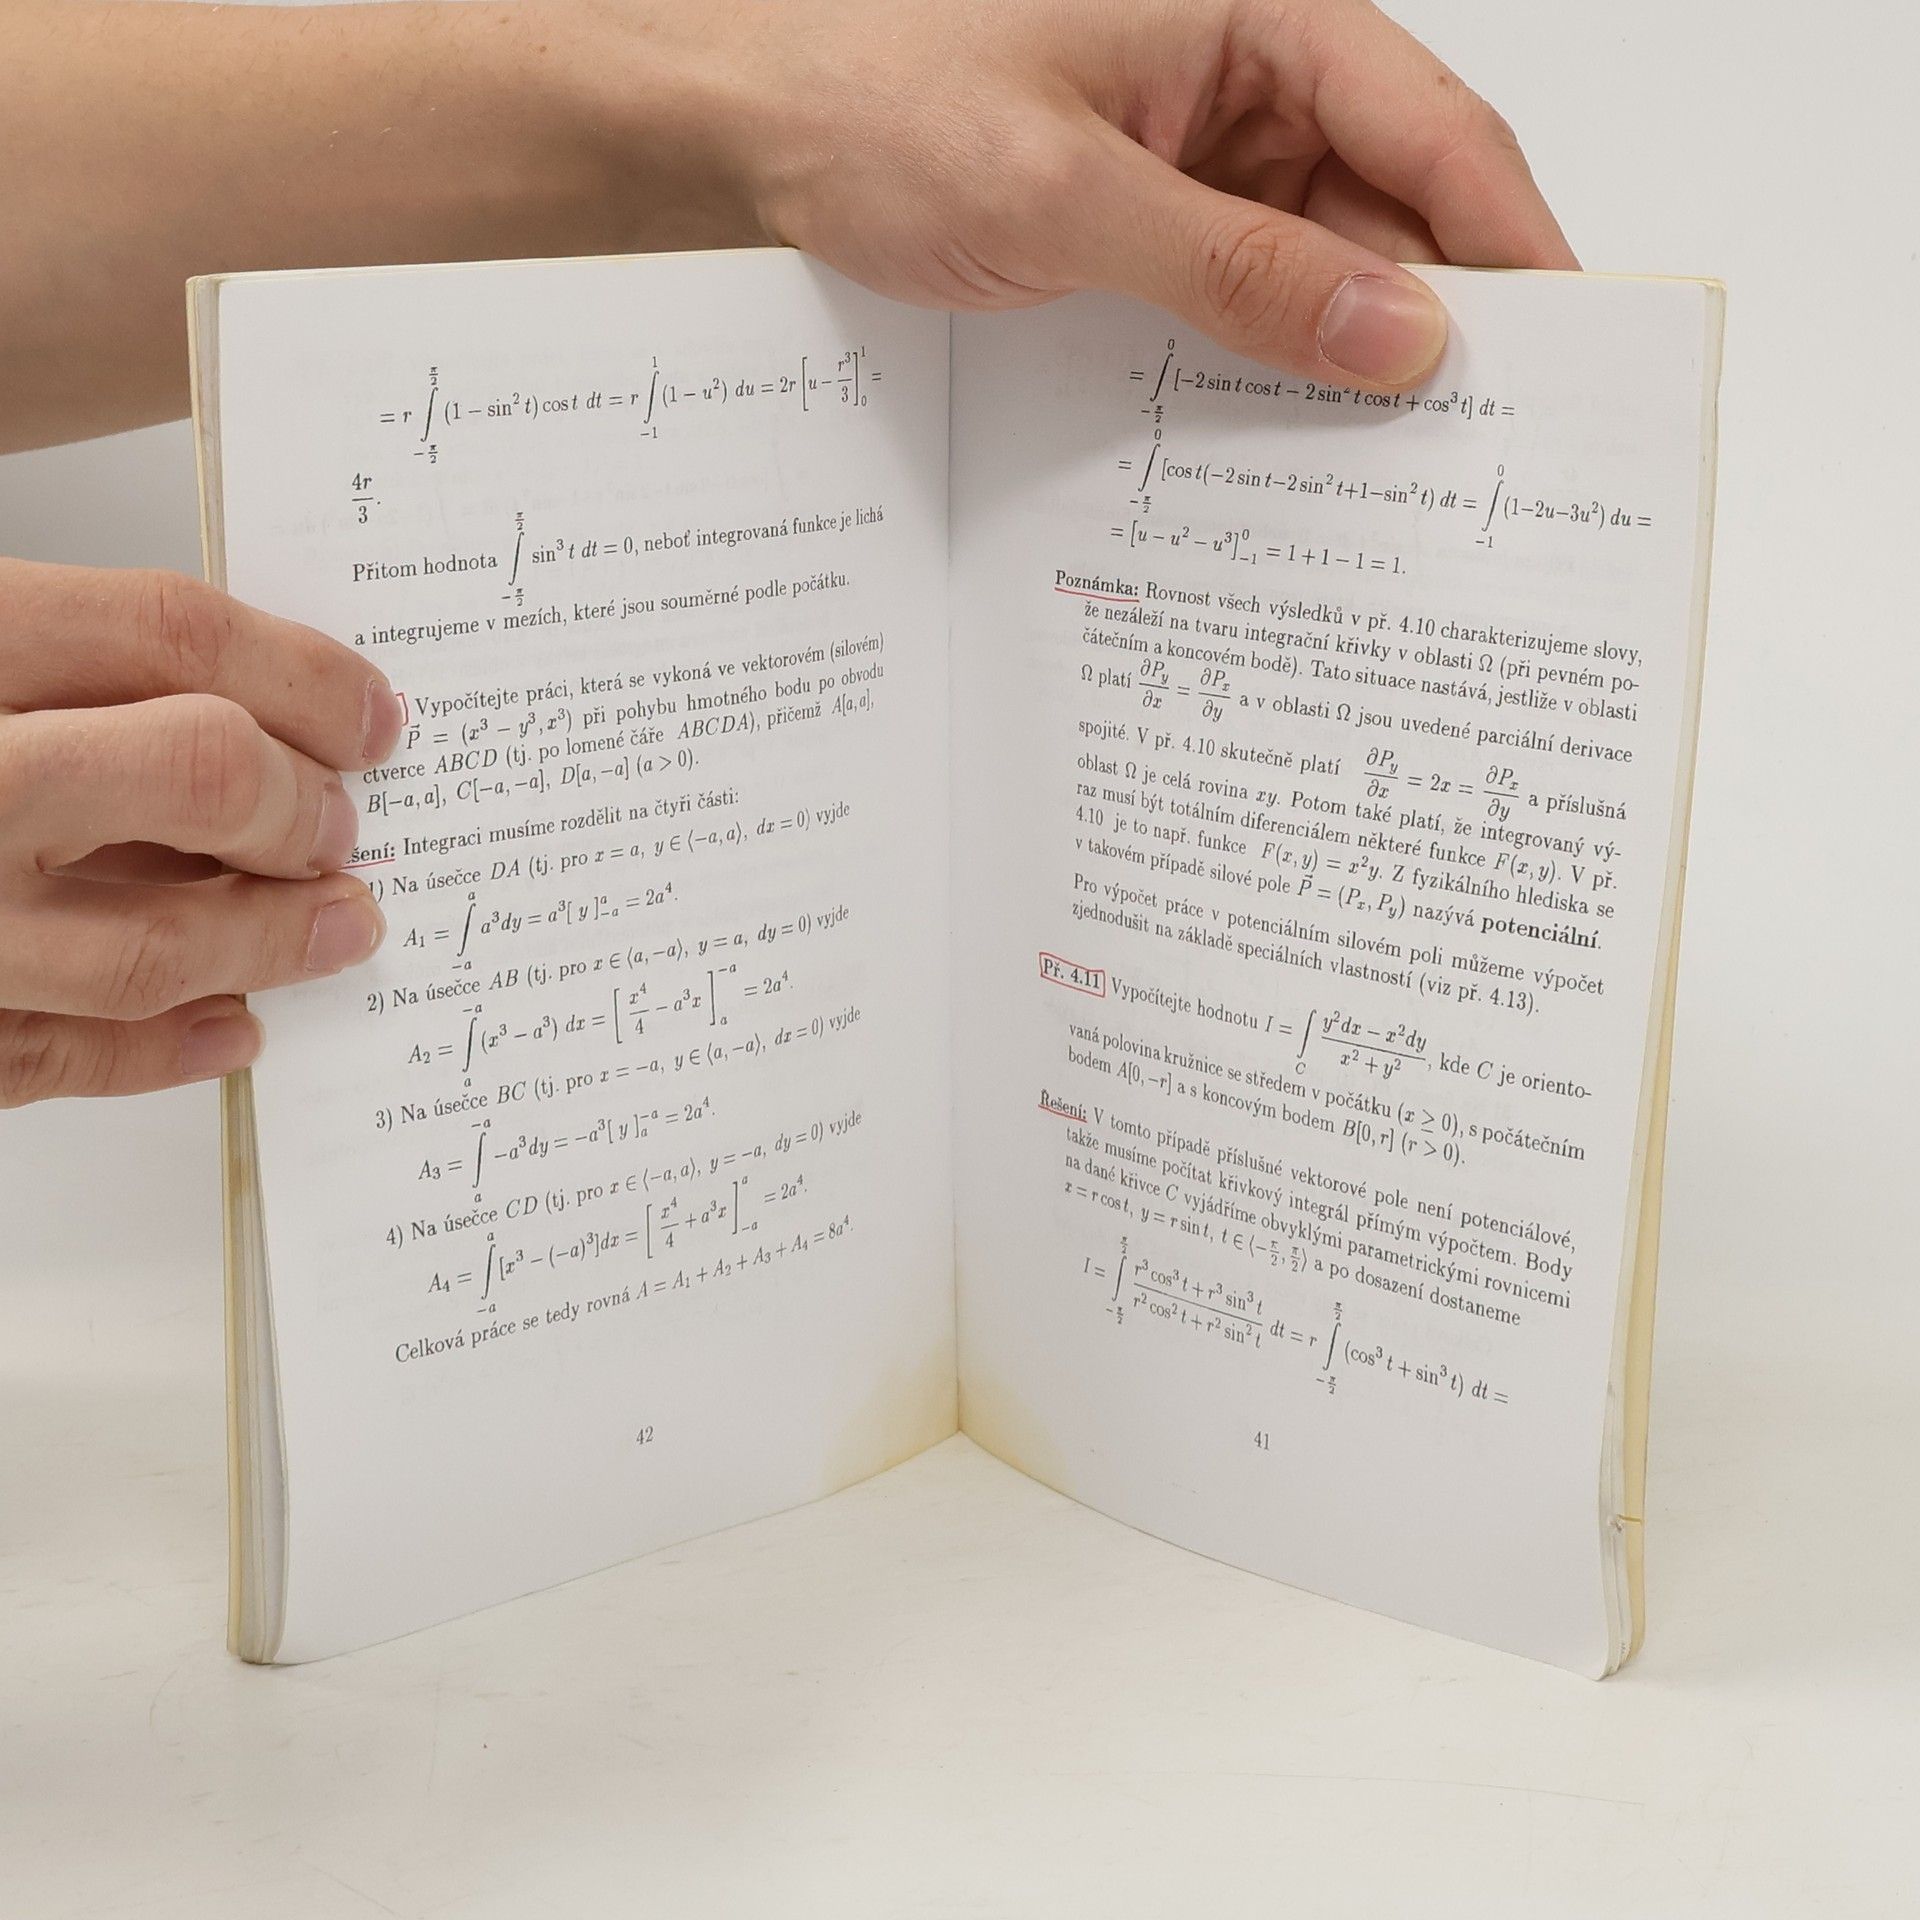 = r ∫_{-π/2}^{π/2} (1 − sin² t) cos t dt = r ∫_{−1}^{1} (1 − u²) du = 2r [u − r³/3]_0^1 =
4r/3.
Přitom hodnota ∫_{-π/2}^{π/2} sin³ t dt = 0, neboť integrovaná funkce je lichá
a integrujeme v mezích, které jsou souměrné podle počátku.
Vypočítejte práci, která se vykoná ve vektorovém (silovém)
P⃗ = (x³ − y³, x³) při pohybu hmotného bodu po obvodu
čtverce ABCD (tj. po lomené čáře ABCDA), přičemž A[a, a],
B[−a, a], C[−a, −a], D[a, −a] (a > 0).
ešení: Integraci musíme rozdělit na čtyři části:
1) Na úsečce DA (tj. pro x = a, y ∈ ⟨−a, a⟩, dx = 0) vyjde
A₁ = ∫_{−a}^{a} a³dy = a³[ y ]_{−a}^{a} = 2a⁴.
2) Na úsečce AB (tj. pro x ∈ ⟨a, −a⟩, y = a, dy = 0) vyjde
A₂ = ∫_{a}^{−a} (x³ − a³) dx = [x⁴/4 − a³x]_{a}^{−a} = 2a⁴.
3) Na úsečce BC (tj. pro x = −a, y ∈ ⟨a, −a⟩, dx = 0) vyjde
A₃ = ∫_{a}^{−a} −a³dy = −a³[ y ]_{a}^{−a} = 2a⁴.
4) Na úsečce CD (tj. pro x ∈ ⟨−a, a⟩, y = −a, dy = 0) vyjde
A₄ = ∫_{−a}^{a} [x³ − (−a)³]dx = [x⁴/4 + a³x]_{−a}^{a} = 2a⁴.
Celková práce se tedy rovná A = A₁ + A₂ + A₃ + A₄ = 8a⁴.
42
= ∫_{−π/2}^{0} [−2 sin t cos t − 2 sin² t cos t + cos³ t] dt =
= ∫_{−π/2}^{0} [cos t(−2 sin t−2 sin² t+1−sin² t) dt = ∫_{−1}^{0} (1−2u−3u²) du =
= [u − u² − u³]_{−1}^{0} = 1 + 1 − 1 = 1.
Poznámka: Rovnost všech výsledků v př. 4.10 charakterizujeme slovy,
že nezáleží na tvaru integrační křivky v oblasti Ω (při pevném po-
čátečním a koncovém bodě). Tato situace nastává, jestliže v oblasti
Ω platí ∂P_y/∂x = ∂P_x/∂y a v oblasti Ω jsou uvedené parciální derivace
spojité. V př. 4.10 skutečně platí ∂P_y/∂x = 2x = ∂P_x/∂y a příslušná
oblast Ω je celá rovina xy. Potom také platí, že integrovaný vý-
raz musí být totálním diferenciálem některé funkce F(x, y). V př.
4.10 je to např. funkce F(x, y) = x²y. Z fyzikálního hlediska se
v takovém případě silové pole P⃗ = (P_x, P_y) nazývá potenciální.
Pro výpočet práce v potenciálním silovém poli můžeme výpočet
zjednodušit na základě speciálních vlastností (viz př. 4.13).
Př. 4.11 Vypočítejte hodnotu I = ∫_C (y²dx − x²dy)/(x² + y²), kde C je oriento-
vaná polovina kružnice se středem v počátku (x ≥ 0), s počátečním
bodem A[0, −r] a s koncovým bodem B[0, r] (r > 0).
Řešení: V tomto případě příslušné vektorové pole není potenciálové,
takže musíme počítat křivkový integrál přímým výpočtem. Body
na dané křivce C vyjádříme obvyklými parametrickými rovnicemi
x = r cos t, y = r sin t, t ∈ ⟨−π/2, π/2⟩ a po dosazení dostaneme
I = ∫_{−π/2}^{π/2} (r³ cos³ t + r³ sin³ t)/(r² cos² t + r² sin² t) dt = r ∫_{−π/2}^{π/2} (cos³ t + sin³ t) dt =
41